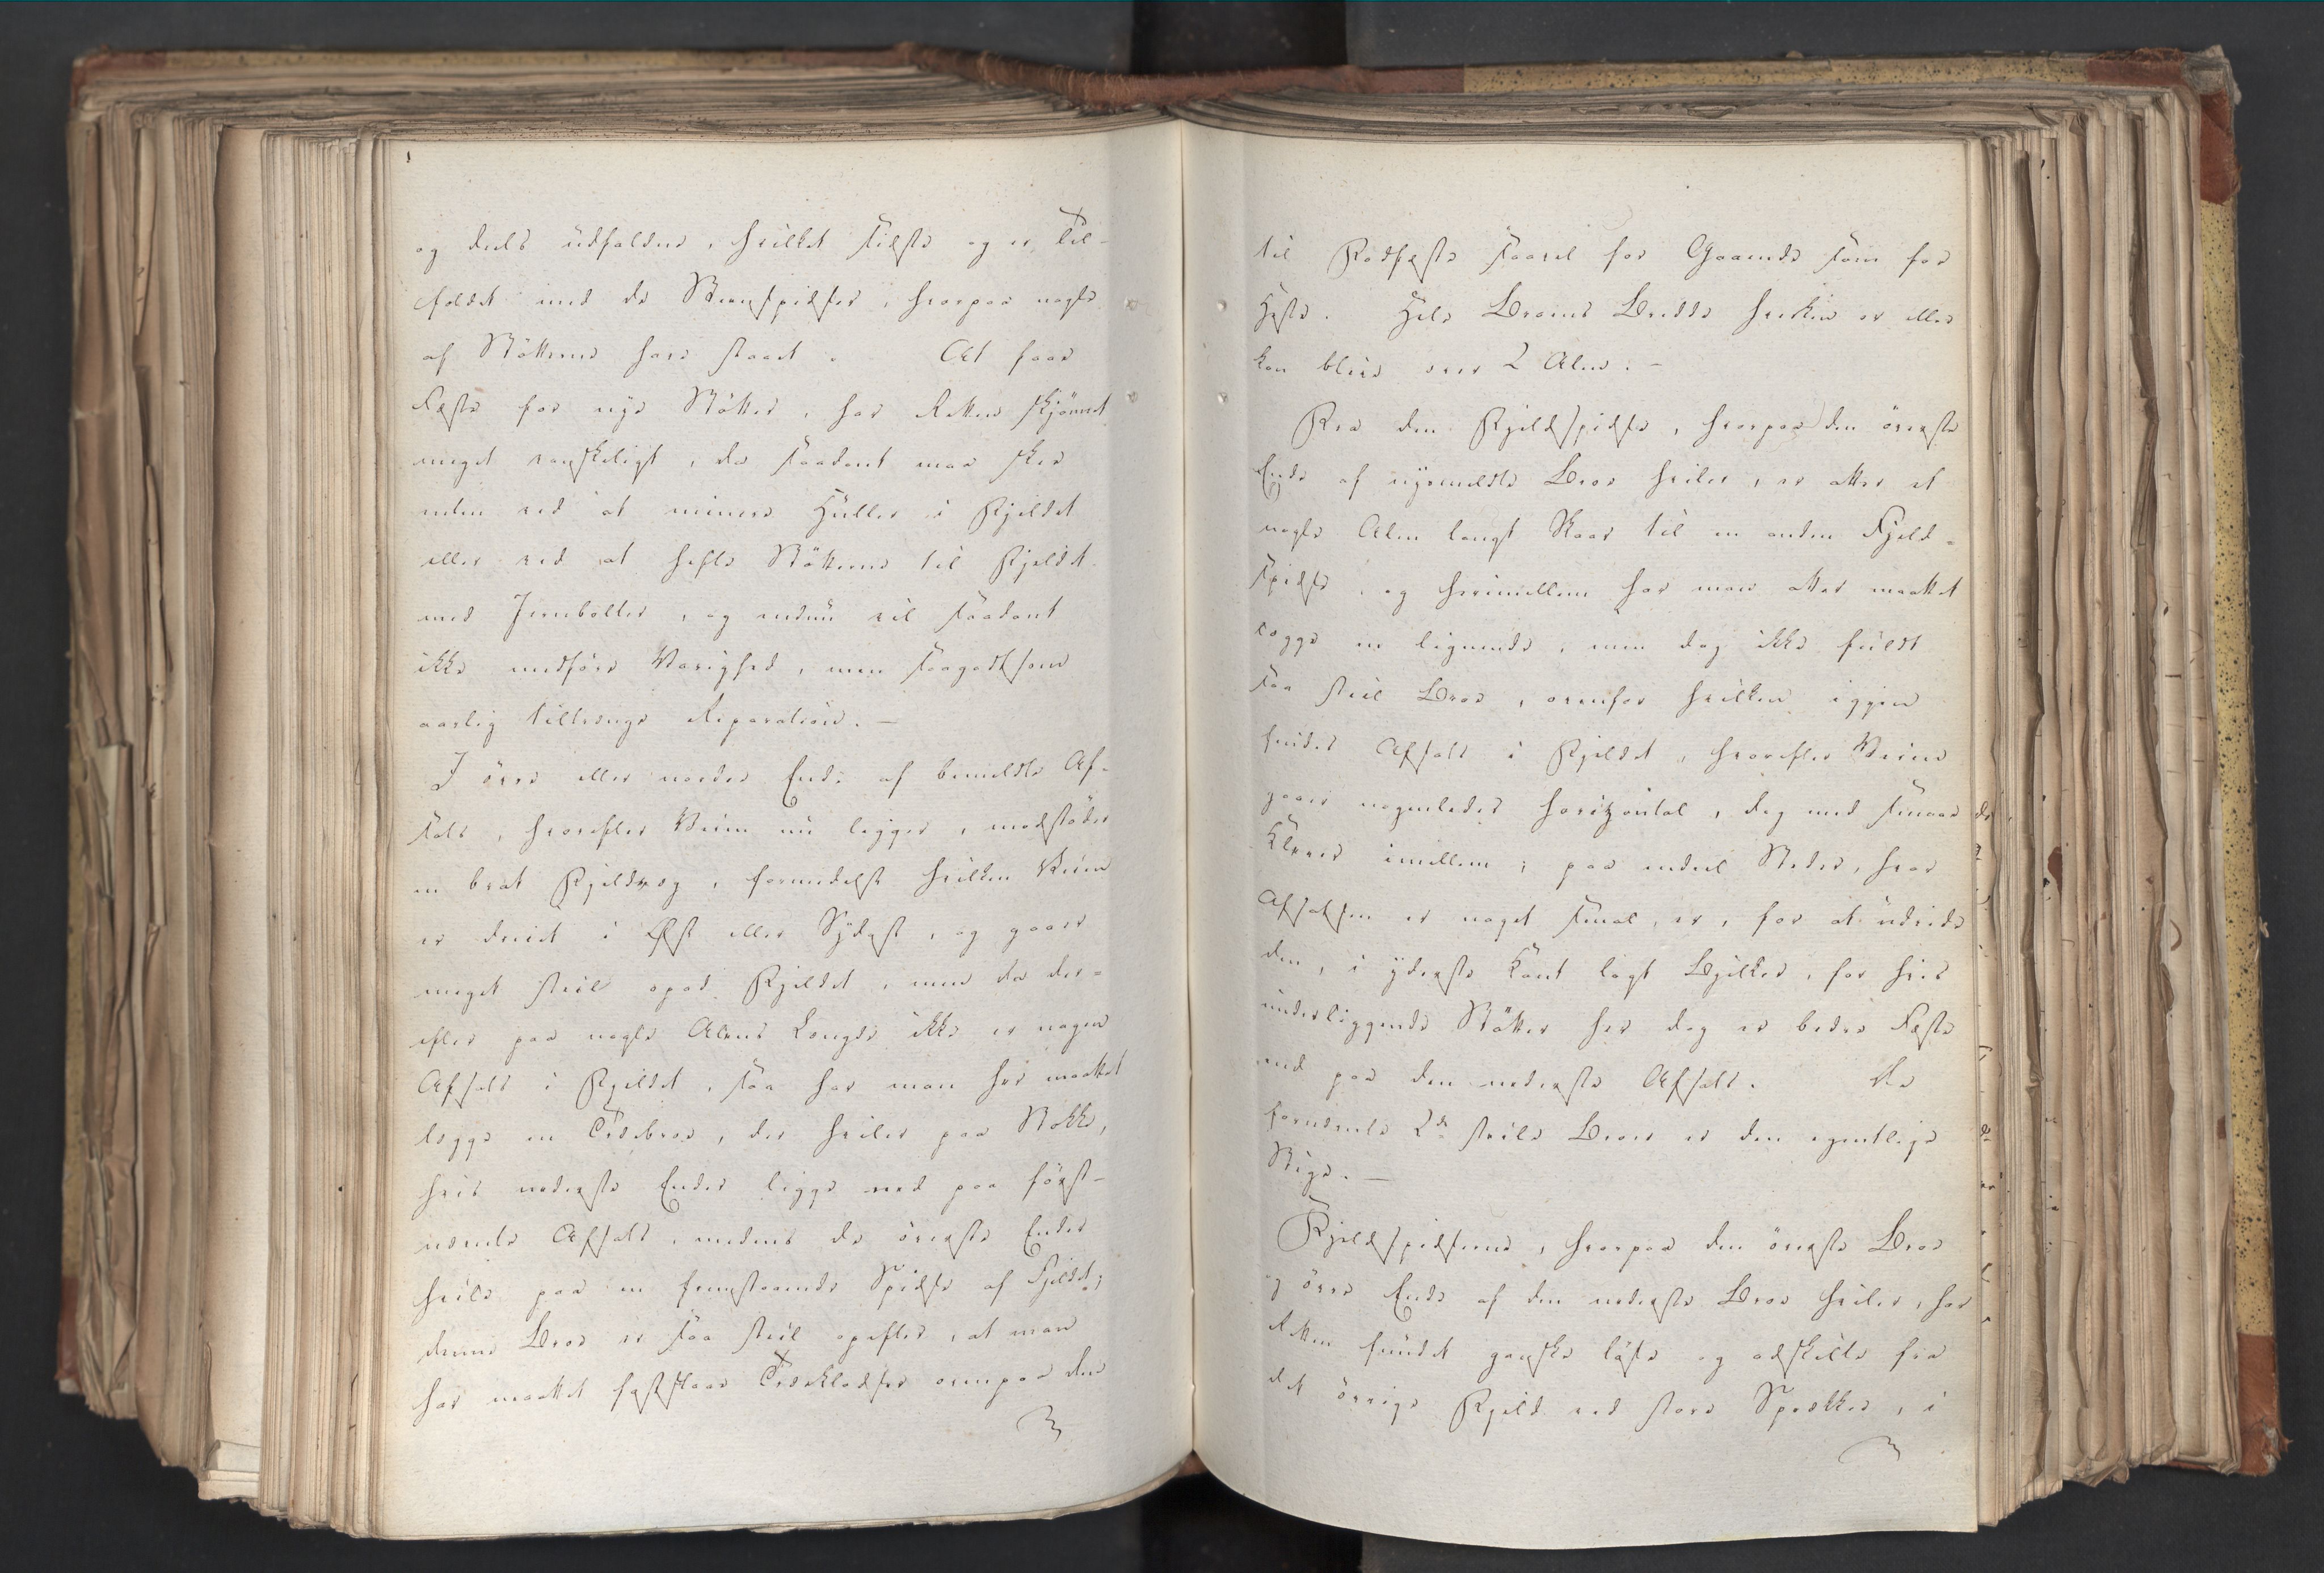 og deels udfaldne, hvilket sidste og er Til-
fældet med de Steenspidser, hvorpaa nogle
af Støtterne have staaet. At faae
Fæste for nye Støtter, har Retten skjønnet
meget vanskeligt, da saadant maa skee
enten ved at minere Huller i Fjeldet
eller ved at hefte Støtterne til Fjeldet
med Jernbolter, og endnu vil saadant
ikke medføre Varighed, men saagodtsom
aarlig tiltrænge Reparation. –
I øvre eller nordre Ende af bemeldte Af-
sats, hvorefter Veien nu ligger, modstøder
en brat Fjeldvæg, formedelst hvilken Veien
er dreiet i Øst eller Sydøst, og gaaer
meget steil opad Fjeldet, men da der-
efter paa nogle Alens Længde ikke er nogen
Afsats i Fjeldet, saa har man her maattet
lægge en Træebroe, der hviler paa Stokke,
hvis nederste Ender ligge ned paa først-
nævnte Afsats, medens de øverste Ender
hvile paa en fremstaaende Spidse af Fjeldet;
denne Broe er saa steil opefter, at man
har maattet fastslaae Træeklodser ovenpaa den
til Fodfæste saavel for Gaaende som for
Heste. Hele Broens Bredde hverken er eller
kan blive over 2 Alen. –
Fra den Fjeldspidse, hvorpaa den øverste
Ende af nysmeldte Broe hviler, er atter et
nogle Alen langt Skaar til en anden Fjeld-
spidse, og herimellem har man atter maattet
lægge en lignende, men dog ikke fuldt
saa steil Broe, ovenfor hvilken igjen
findes Afsats i Fjeldet, hvorefter Veien
gaaer nogenledes horizontal, dog med smaae
Klever imellem; paa endeel Steder, hvor
Afsatsen er noget smal, er, for at udvide
den, i yderste Kant lagt Bjelker, for hvis
underliggende Støtter her dog er bedre Fæste
end paa den nederste Afsats. De
fornævnte 2de steile Broer er den egentlige
Stige. –
Fjeldspidserne, hvorpaa den øverste Broe
og øvre Ende af den nederste Broe hviler, har
Retten fundet ganske løse og adskilte fra
det øvrige Fjeld ved store Sprækker, i